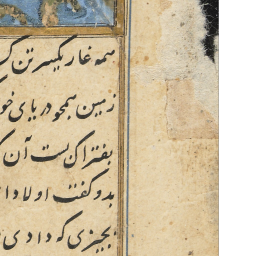 همه غار یکسر تن ک
زمین همچو دریای خو
بفتراک بست آن
بدو گفت اولاد ا
بچیزی که دادی